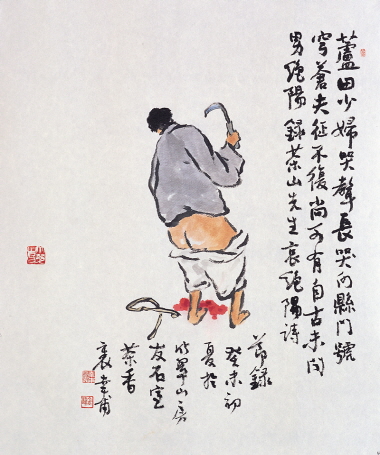 蘆田少婦哭聲長哭向縣門號
穹蒼夫征不復尚可有自古未聞
男絶陽錄茶山先生哀絶陽詩
節錄
癸未初
夏於
山房
友石室
茶香
裏 甫